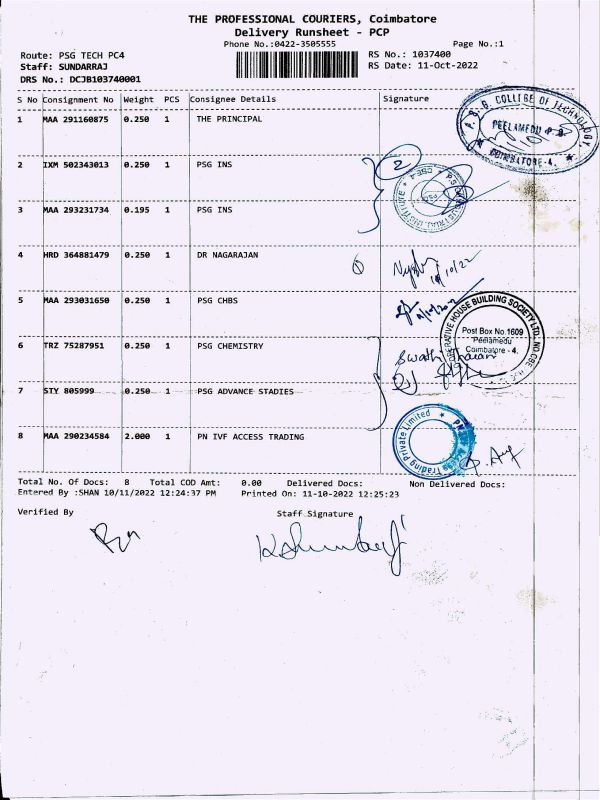 THE PROFESSIONAL COURIERS, Coimbatore
Delivery Runsheet - PCP
Phone No.:0422-3505555 Page No.:1
Route: PSG TECH PC4 RS No.: 1037400
Staff: SUNDARRAJ RS Date: 11-Oct-2022
DRS No.: DCJB103740001
S No Consignment No Weight PCS Consignee Details Signature
1 MAA 291160875 0.250 1 THE PRINCIPAL
P. S. G. COLLEGE OF TECHNOLOGY,
PEELAMEDU P.O.
COIMBATORE-4.
2 IXM 502343013 0.250 1 PSG INS
2
3 MAA 293231734 0.195 1 PSG INS
4 HRD 364881479 0.250 1 DR NAGARAJAN
11/10/22
5 MAA 293031650 0.250 1 PSG CHBS
HOUSE BUILDING SOCIETY LTD.
Post Box No.1609
Peelamedu
Coimbatore - 4.
6 TRZ 75287951 0.250 1 PSG CHEMISTRY
7 STY 805999 0.250 1 PSG ADVANCE STADIES
8 MAA 290234584 2.000 1 PN IVF ACCESS TRADING
Trading Private Limited
Total No. Of Docs: 8 Total COD Amt: 0.00 Delivered Docs: Non Delivered Docs:
Entered By :SHAN 10/11/2022 12:24:37 PM Printed On: 11-10-2022 12:25:23
Verified By Staff Signature